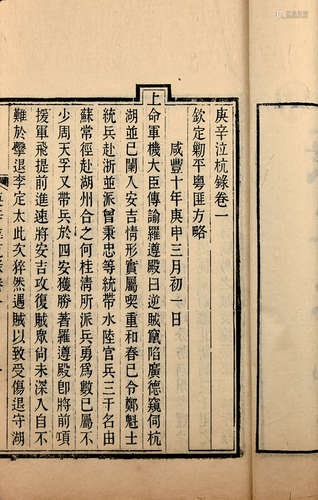 庚辛泣杭錄卷一
欽定勦平粵匪方略
咸豐十年庚申三月初一日
上命軍機大臣傳諭羅遵殿曰逆賊竄陷廣德窺伺杭
湖並已闌入安吉情形實屬喫重和春已令鄭魁士
統兵赴浙並派曾秉忠等統帶水陸官兵三千名由
蘇常徑赴湖州合之何桂清所派兵勇為數已屬不
少周天孚又帶兵於四安獲勝著羅遵殿即將前項
援軍飛提前進速將安吉攻復賊眾尚未深入自不
難於擊退李定太此次猝然遇賊以致受傷退守湖